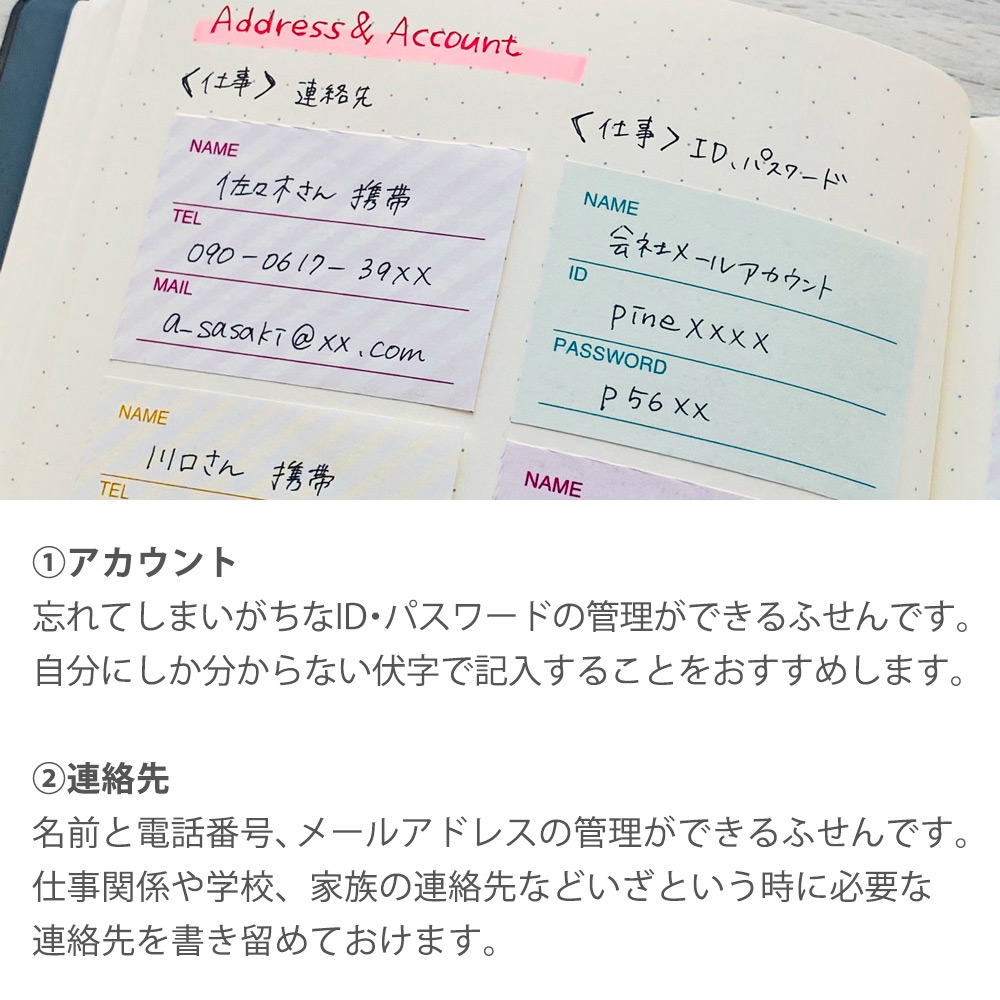 Address & Account
〈仕事〉 連絡先
NAME
佐々木さん 携帯
TEL
090-0617-39XX
MAIL
a_sasaki@xx.com
NAME
川口さん 携帯
TEL
〈仕事〉ID、パスワード
NAME
会社メールアカウント
ID
pineXXXX
PASSWORD
P56XX
NAME
①アカウント
忘れてしまいがちなID・パスワードの管理ができるふせんです。
自分にしか分からない伏字で記入することをおすすめします。
②連絡先
名前と電話番号、メールアドレスの管理ができるふせんです。
仕事関係や学校、家族の連絡先などいざという時に必要な
連絡先を書き留めておけます。